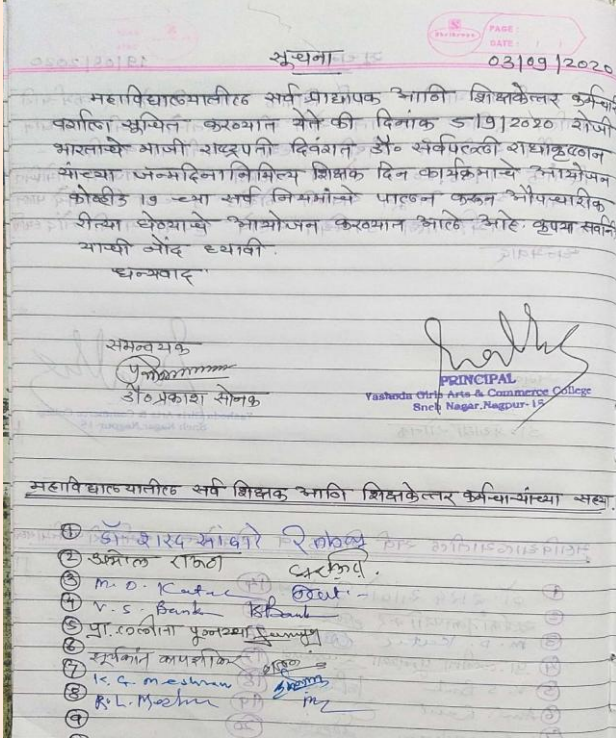 PAGE :
DATE :
सूचना
03/09/2020
महाविद्यालयातील सर्व प्राध्यापक आणि शिक्षकेत्तर कर्मचारी
वर्गाला सूचित करण्यात येते की दिनांक 5/9/2020 रोजी
भारताचे माजी राष्ट्रपती दिवंगत डॉ० सर्वपल्ली राधाकृष्णन
यांच्या जन्मदिनानिमित्य शिक्षक दिन कार्यक्रमाचे आयोजन
कोव्हीड 19 च्या सर्व नियमांचे पालन करून औपचारीक
रीत्या घेण्याचे आयोजन करण्यात आले आहे. कृपया सर्वांनी
याची नोंद घ्यावी.
धन्यवाद
समन्वयक
डॉ० प्रकाश सोनक
PRINCIPAL
Yashoda Girls Arts & Commerce College
Sneh Nagar, Nagpur-15
महाविद्यालयातील सर्व शिक्षक आणि शिक्षकेत्तर कर्मचाऱ्यांच्या सह्या.
① डॉ शरद
② अमोल राऊत
③ M. D.
④ V. S. Bank
⑤ प्रा.
⑥ सूर्यकांत
⑦ K. G. Meshram
⑧ R. L.
⑨